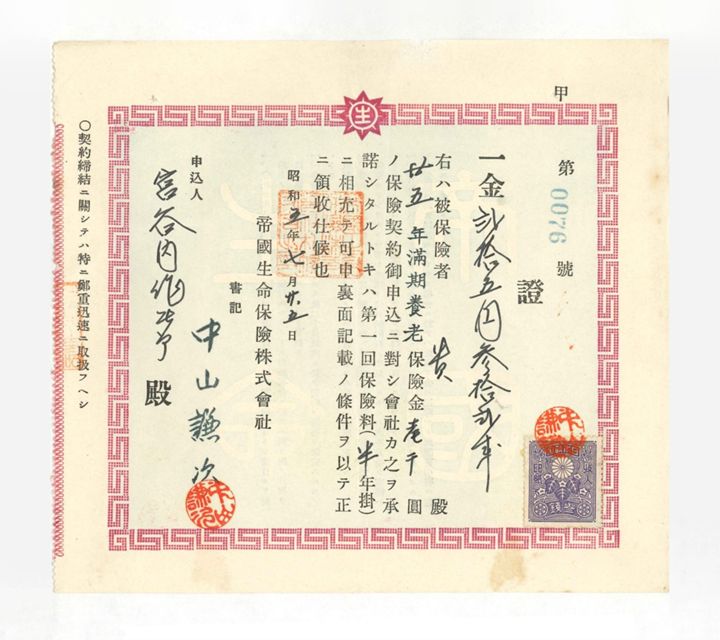 甲
第0076號
證
一金弐拾五円参拾弐銭
右ハ被保險者 貴 殿
廿五年滿期養老保險金壱千圓
ノ保險契約御申込ニ對シ會社カ之ヲ承
諾シタルトキハ第一回保險料(半年掛)
ニ相充テ可申裏面記載ノ條件ヲ以テ正
ニ領收仕候也
昭和五年七月廿五日
帝國生命保險株式會社
書記
中山謙次
申込人
宮谷内
殿
〇契約締結ニ關シテハ特ニ鄭重迅速ニ取扱フヘシ
生